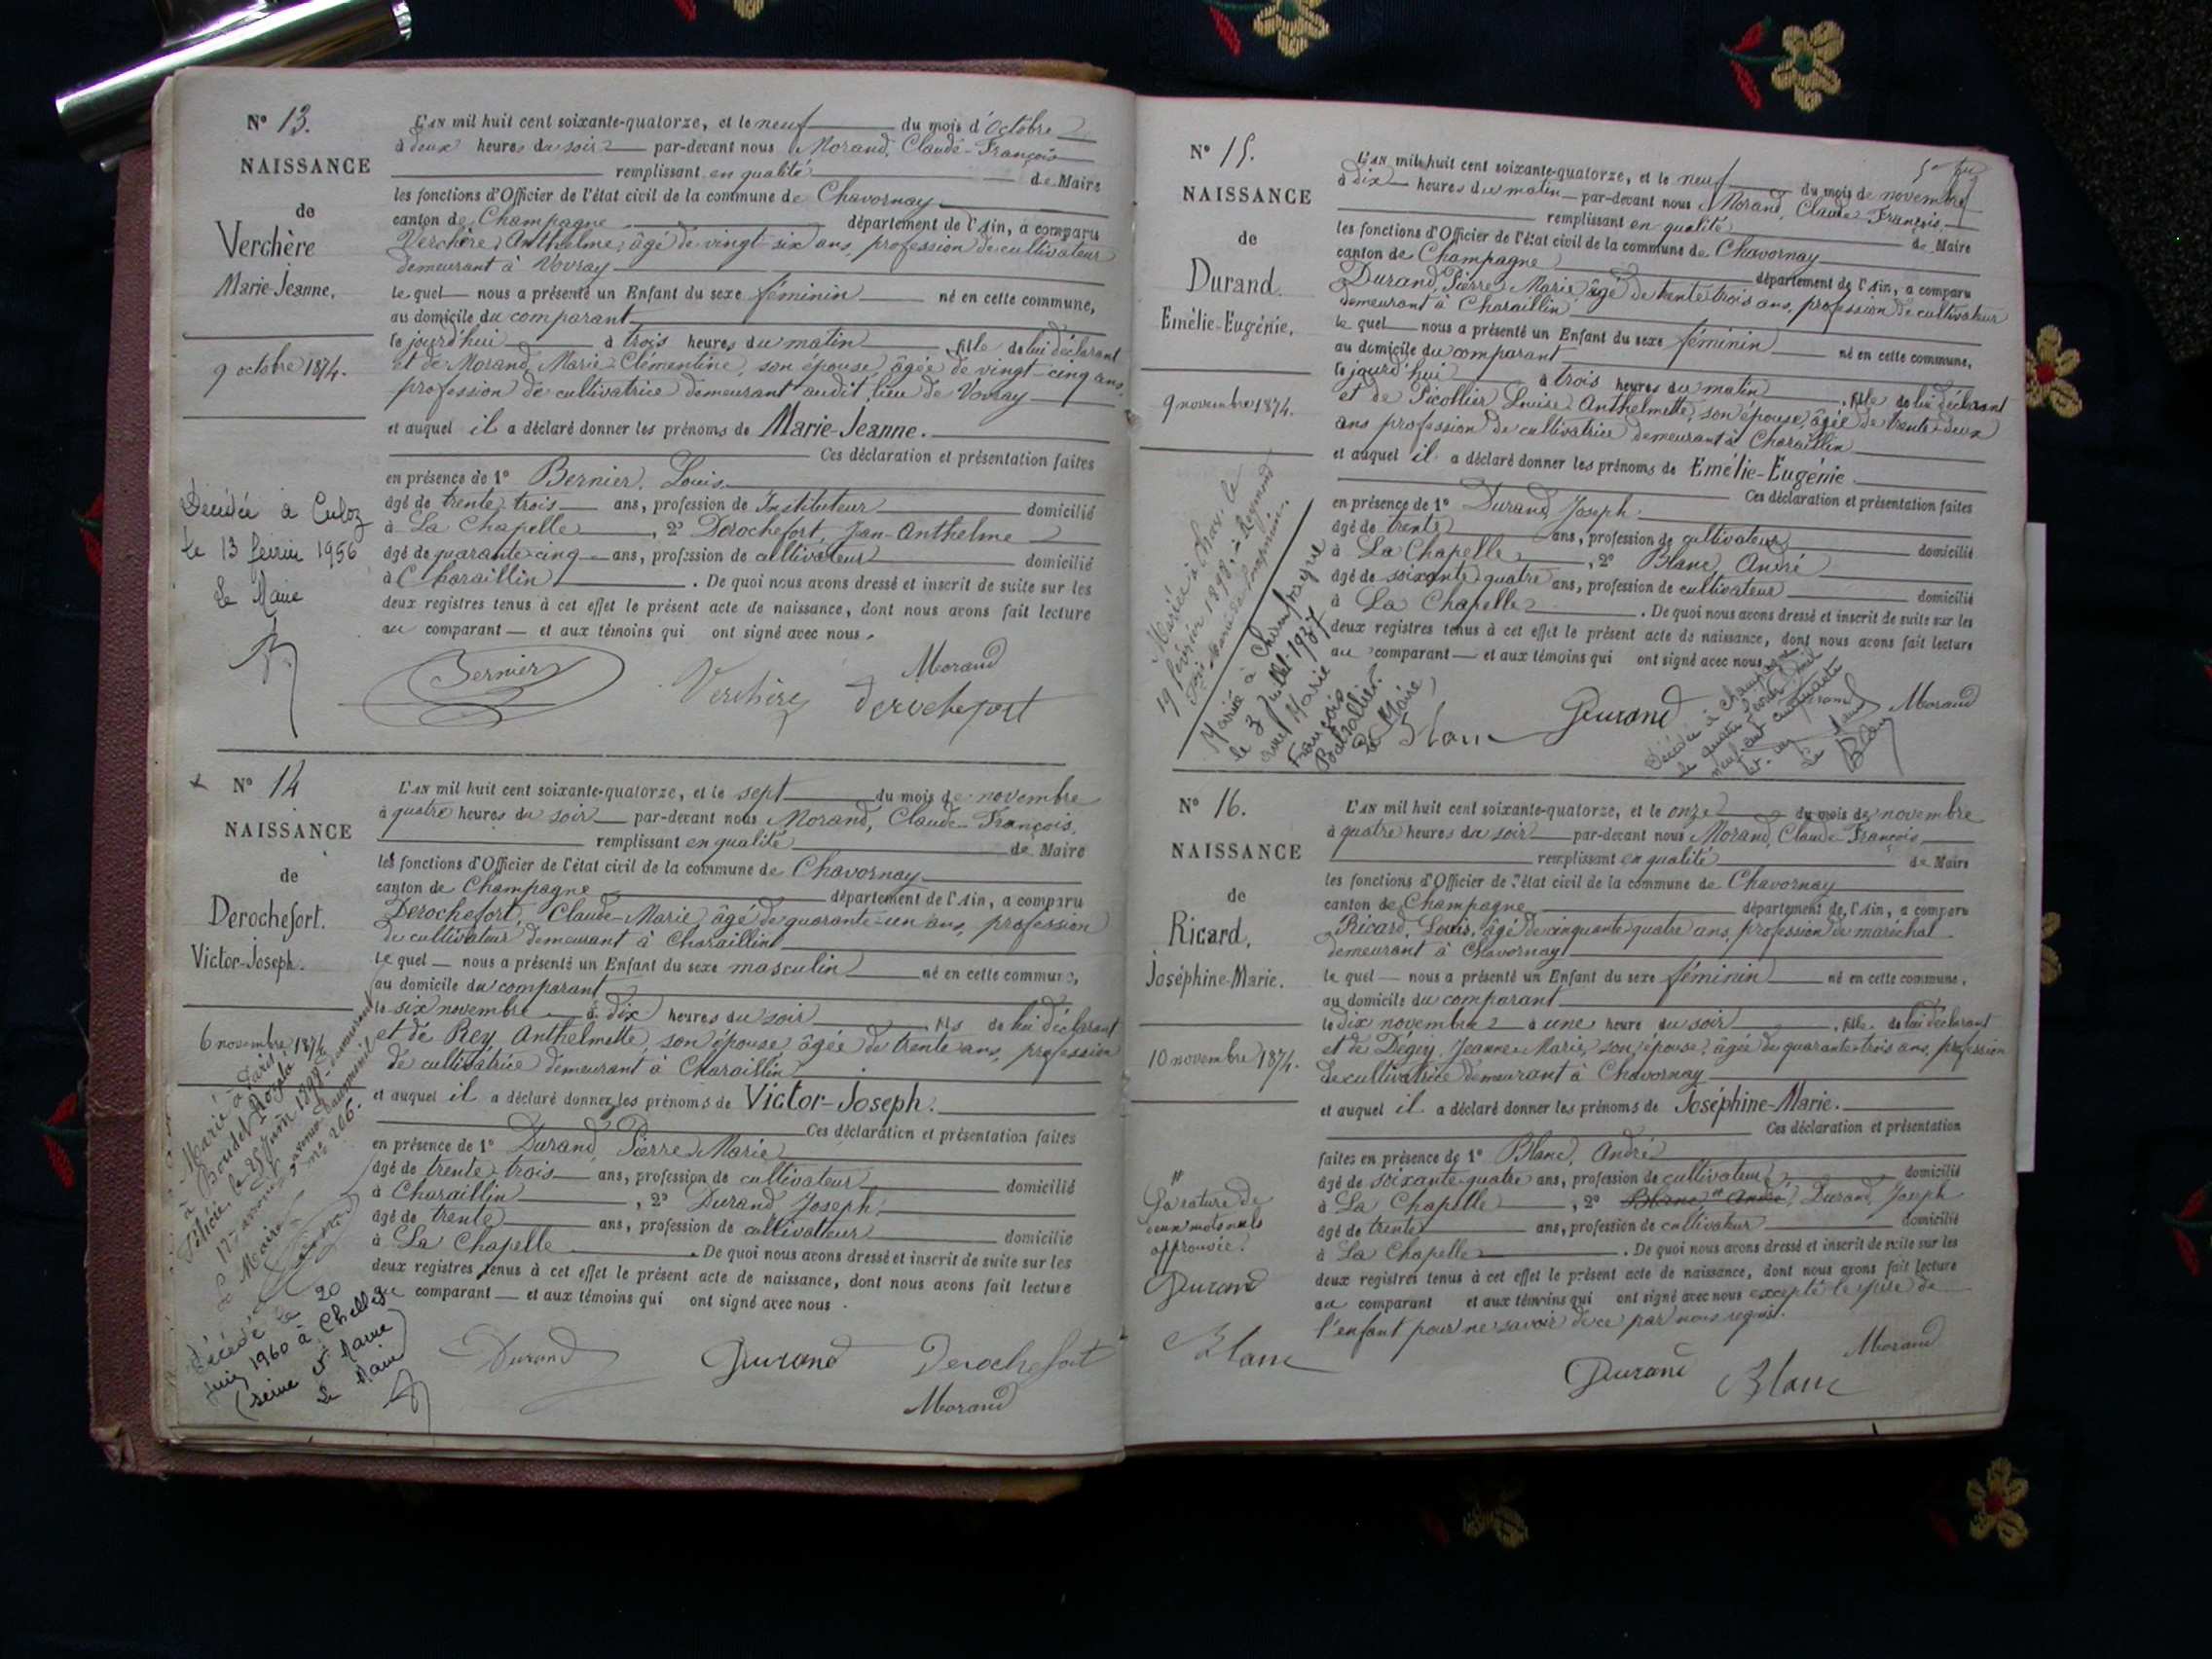 N° 13.
NAISSANCE
de
Verchère
Marie-Jeanne.
9 octobre 1874.
Décédée à Culoz
le 13 février 1956
Le Maire
L'AN mil huit cent soixante-quatorze, et le neuf du mois d'Octobre
à deux heures du soir par-devant nous Morand, Claude-François
remplissant en qualité de Maire
les fonctions d'Officier de l'état civil de la commune de Chavornay
canton de Champagne département de l'Ain, a comparu
Verchère, Anthelme, âgé de vingt-six ans, profession de cultivateur
demeurant à Vovray
le quel nous a présenté un Enfant du sexe féminin né en cette commune,
au domicile du comparant
le jourd'hui à trois heures du matin fille de lui déclarant
et de Morand, Marie-Clémentine, son épouse, âgée de vingt-cinq ans,
profession de cultivatrice demeurant audit lieu de Vovray
et auquel il a déclaré donner les prénoms de Marie-Jeanne.
Ces déclaration et présentation faites
en présence de 1° Bernier, Louis
âgé de trente trois ans, profession de Instituteur domicilié
à La Chapelle, 2° Derochefort, Jean-Anthelme
âgé de quarante-cinq ans, profession de cultivateur domicilié
à Charaillin. De quoi nous avons dressé et inscrit de suite sur les
deux registres tenus à cet effet le présent acte de naissance, dont nous avons fait lecture
au comparant et aux témoins qui ont signé avec nous.
Bernier Verchère Morand
Derochefort
N° 14
NAISSANCE
de
Derochefort.
Victor-Joseph.
6 novembre 1874
Marié à Paris
à Boudet Rosalie
Félicie, le 25 juin 1898
n° 206.
Le Maire
Décédé le 20
juin 1960 à Chelles
(Seine et Marne)
Le Maire
L'AN mil huit cent soixante-quatorze, et le sept du mois de novembre
à quatre heures du soir par-devant nous Morand, Claude-François,
remplissant en qualité de Maire
les fonctions d'Officier de l'état civil de la commune de Chavornay
canton de Champagne département de l'Ain, a comparu
Derochefort, Claude-Marie, âgé de quarante-un ans, profession
de cultivateur demeurant à Charaillin
le quel nous a présenté un Enfant du sexe masculin né en cette commune,
au domicile du comparant
le six novembre à dix heures du soir, fils de lui déclarant
et de Rey Anthelmette, son épouse, âgée de trente ans, profession
de cultivatrice demeurant à Charaillin
et auquel il a déclaré donner les prénoms de Victor-Joseph.
Ces déclaration et présentation faites
en présence de 1° Durand, Pierre Marie
âgé de trente-trois ans, profession de cultivateur domicilié
à Charaillin, 2° Durand, Joseph,
âgé de trente ans, profession de cultivateur domicilié
à La Chapelle. De quoi nous avons dressé et inscrit de suite sur les
deux registres tenus à cet effet le présent acte de naissance, dont nous avons fait lecture
au comparant et aux témoins qui ont signé avec nous.
Durand Durand Derochefort
Morand
N° 15.
NAISSANCE
de
Durand.
Emélie-Eugénie.
9 novembre 1874.
Mariée à Chav. le
19 février 1898, à Reymond
Mariée à Champagne
le 3 juillet 1937
avec Marie
François
Le Maire
L'AN mil huit cent soixante-quatorze, et le neuf du mois de novembre
à dix heures du matin par-devant nous Morand, Claude-François,
remplissant en qualité de Maire
les fonctions d'Officier de l'état civil de la commune de Chavornay
canton de Champagne département de l'Ain, a comparu
Durand, Pierre-Marie âgé de trente trois ans, profession de cultivateur
demeurant à Charaillin
le quel nous a présenté un Enfant du sexe féminin né en cette commune,
au domicile du comparant
le jourd'hui à trois heures du matin, fille de lui déclarant
et de Picollier Louise Anthelmette, son épouse, âgée de trente-deux
ans profession de cultivatrice demeurant à Charaillin
et auquel il a déclaré donner les prénoms de Emélie-Eugénie
Ces déclaration et présentation faites
en présence de 1° Durand, Joseph.
âgé de trente ans, profession de cultivateur domicilié
à La Chapelle, 2° Blanc, André
âgé de soixante-quatre ans, profession de cultivateur domicilié
à La Chapelle. De quoi nous avons dressé et inscrit de suite sur les
deux registres tenus à cet effet le présent acte de naissance, dont nous avons fait lecture
au comparant et aux témoins qui ont signé avec nous
Blanc Durand Durand Morand
Décédée à Champagne
le quatre
neuf cent cinquante
Le Maire
N° 16.
NAISSANCE
de
Ricard,
Joséphine-Marie.
10 novembre 1874.
La rature de
deux mots nuls
approuvée.
Durand
Blanc
L'AN mil huit cent soixante-quatorze, et le onze du mois de novembre
à quatre heures du soir par-devant nous Morand, Claude-François
remplissant en qualité de Maire
les fonctions d'Officier de l'état civil de la commune de Chavornay
canton de Champagne département de l'Ain, a comparu
Ricard, Louis, âgé de cinquante quatre ans, profession de maréchal
demeurant à Chavornay
le quel nous a présenté un Enfant du sexe féminin né en cette commune,
au domicile du comparant
le dix novembre à une heure du soir, fille de lui déclarant
et de Déguy, Jeanne-Marie, son épouse, âgée de quarante-trois ans, profession
de cultivatrice demeurant à Chavornay
et auquel il a déclaré donner les prénoms de Joséphine-Marie.
Ces déclaration et présentation
faites en présence de 1° Blanc, André
âgé de soixante-quatre ans, profession de cultivateur domicilié
à La Chapelle, 2° Blanc André, Durand, Joseph
âgé de trente ans, profession de cultivateur domicilié
à La Chapelle. De quoi nous avons dressé et inscrit de suite sur les
deux registres tenus à cet effet le présent acte de naissance, dont nous avons fait lecture
au comparant et aux témoins qui ont signé avec nous excepté le père de
l'enfant pour ne savoir de ce par nous requis.
Durand Blanc Morand